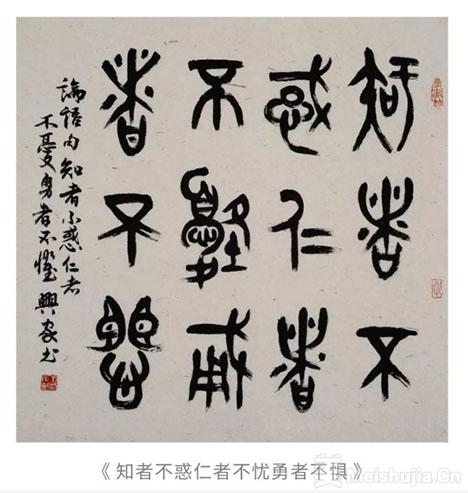 知者不
惑仁者
不憂勇
者不懼
論語内知者不惑仁者
不憂勇者不懼 興家书
Meishujia.Cn
《 知者不惑仁者不忧勇者不惧 》